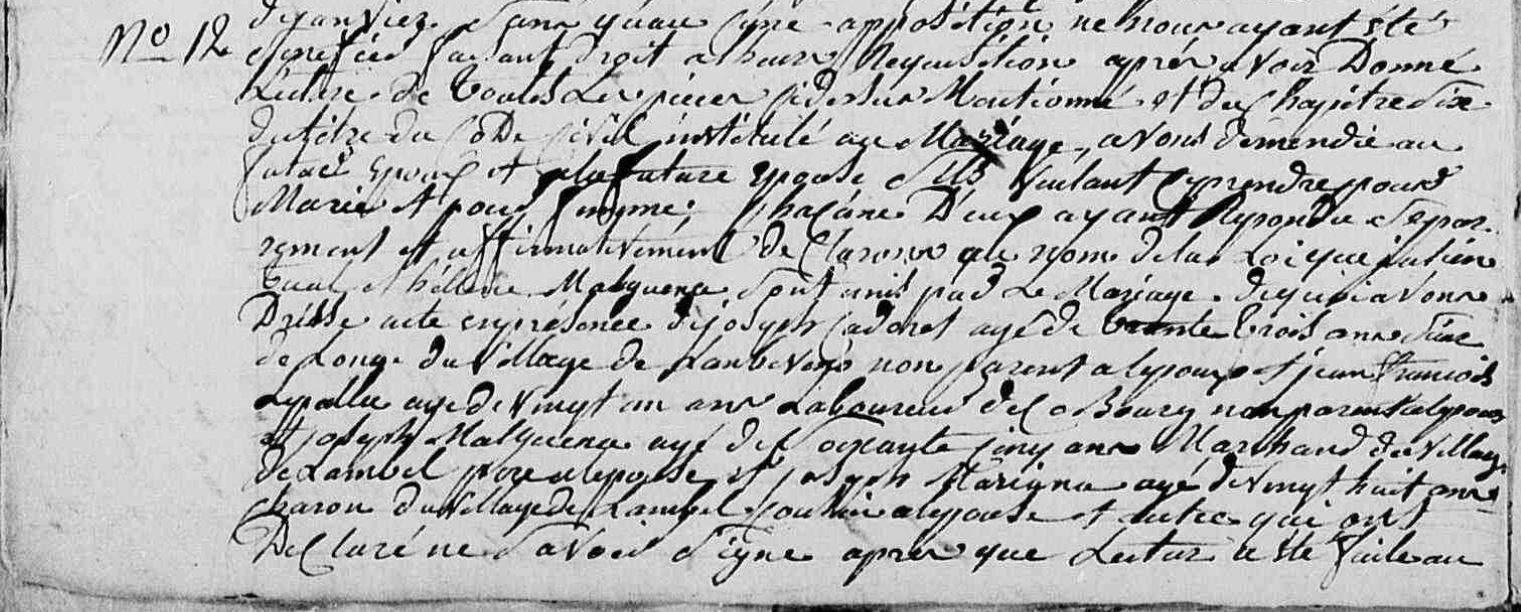 No 12 de janvier sans qu'aucune opposition ne nous ayant été
signifiée faisant droit a leur Requisition après avoir Donné
Lecture de toutes Les pieces cidessus Mentionné et du Chapitre Six
du titre du Code Civil institulé du Mariage, avons demendé au
futur Epoux et a la future Epouse s'ils veulent se prendre pour
Marie et pour femme, chacune D'eux ayant Repondu separ-
rement et affirmativement declarons au nom de la Loi que julien
hélène Malguena sont unis par Le Mariage. de quoi avons
Drésse acte en présence de joseph Cadoret agé de trente trois ans
de Longe du village de non parent a lepoux et jean francois
agé de vingt un ans Laboureur de ce Bourg non parent a lepoux
et joseph Malguena agé de soixante cinq ans Marchand du village
de Lambel pere a lepouse et joseph Marigna agé de vingt huit ans
charon du village de Lambel cousin a lepouse et qui ont
Declaré ne savoir signe après que Lecture a été faite au